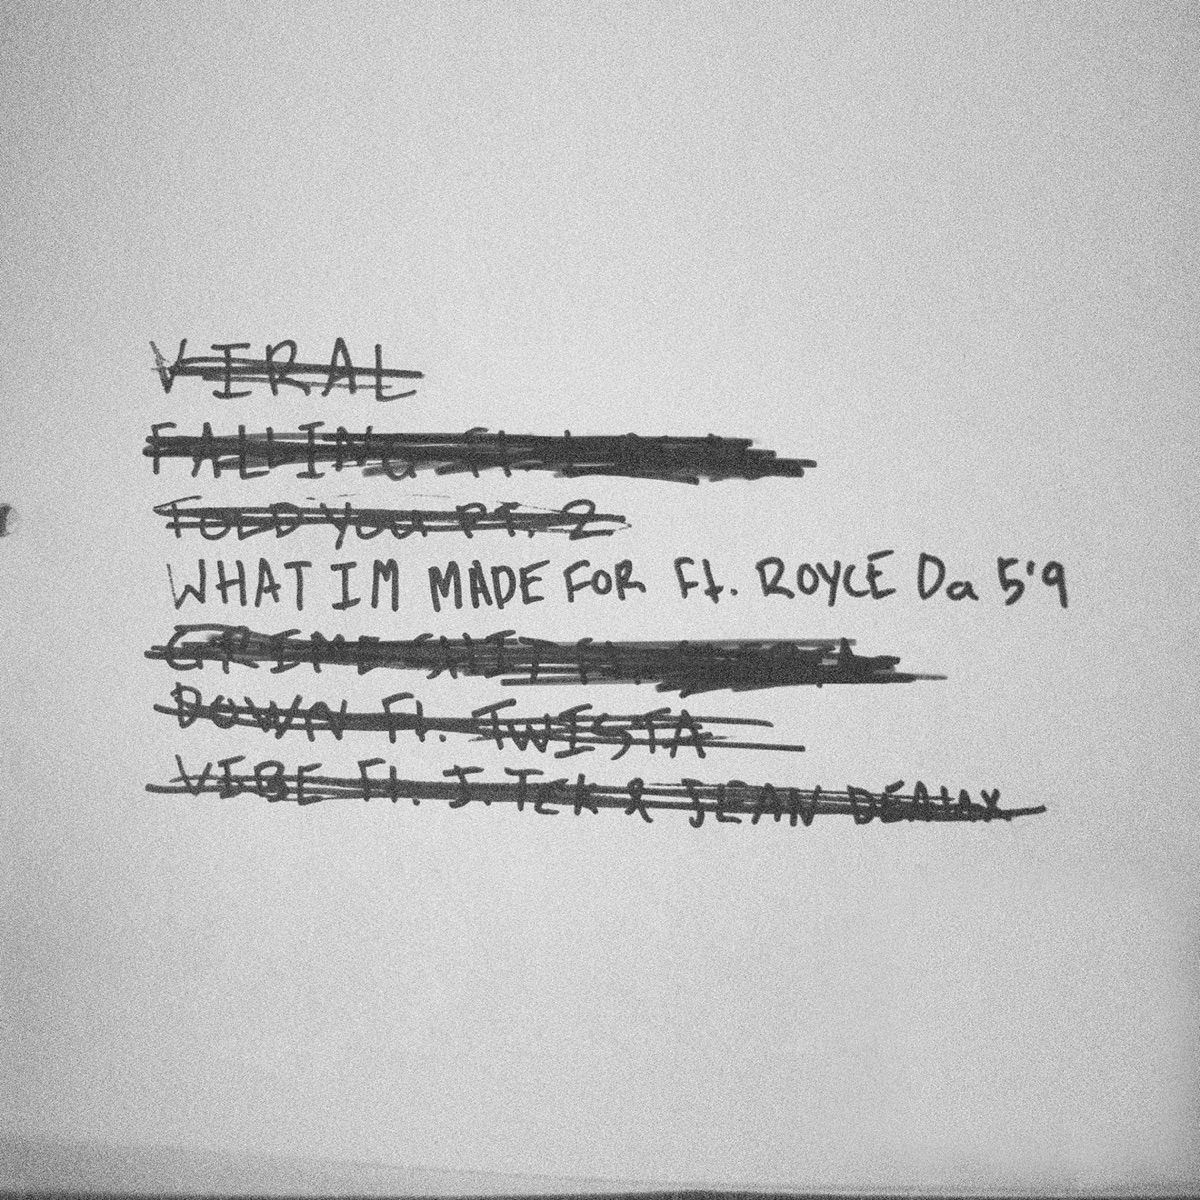 VIRAL
FALLING
TOLD YOU PT. 2
WHAT IM MADE FOR Ft. ROYCE Da 5'9
DOWN Ft. TWISTA
VIBE Ft. J. TEK & JEAN DEAUX